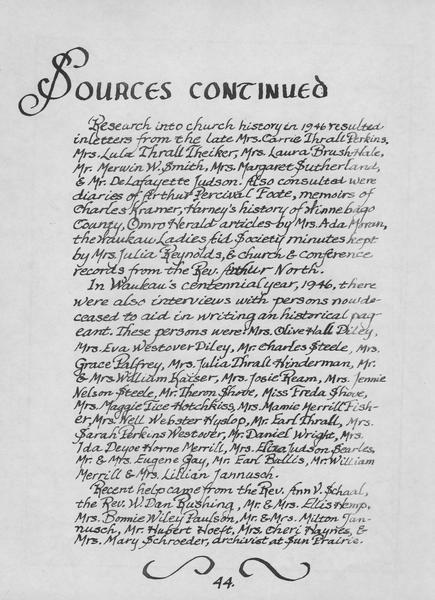 Sources continued
Research into church history in 1946 resulted
in letters from the late Mrs. Carrie Thrall Perkins,
Mrs. Lula Thrall Theiker, Mrs. Laura Brush Hale,
Mr. Merwin W. Smith, Mrs. Margaret Sutherland,
& Mr. DeLafayette Judson. Also consulted were
diaries of Arthur Percival Foote, memoirs of
Charles Kramer, Harney's history of Winnebago
County, Omro Herald articles by Mrs. Ada Moran,
the Waukau Ladies Aid Society minutes kept
by Mrs. Julia Reynolds, & church & conference
records from the Rev. Arthur North.
In Waukau's centennial year, 1946, there
were also interviews with persons now de-
ceased to aid in writing an historical pag
eant. These persons were: Mrs. Olive Hall Diley,
Mrs. Eva Westover Diley, Mr. Charles Steele, Mrs.
Grace Palfrey, Mrs. Julia Thrall Hinderman, Mr.
& Mrs. William Kaiser, Mrs. Josie Ream, Mrs. Jennie
Nelson Steele, Mr. Theron Shove, Miss Freda Shove,
Mrs. Maggie Tice Hotchkiss, Mrs. Mamie Merrill Fish-
er, Mrs. Nell Webster Hyslop, Mr. Earl Thrall, Mrs.
Sarah Perkins Westover, Mr. Daniel Wright, Mrs.
Ida Deyoe Horne Merrill, Mrs. Etta Judson Searles,
Mr. & Mrs. Eugene Gay, Mr. Earl Ballis, Mr. William
Merrill & Mrs. Lillian Jannusch.
Recent help came from the Rev. Ann V. Schaal,
the Rev. W. Dan Rushing, Mr. & Mrs. Ellis Hemp,
Mrs. Bonnie Wiley Paulson, Mr. & Mrs. Milton Jan-
nusch, Mr. Hubert Hoeft, Mrs. Cheri Haynes, &
Mrs. Mary Schroeder, archivist at Sun Prairie.
44.